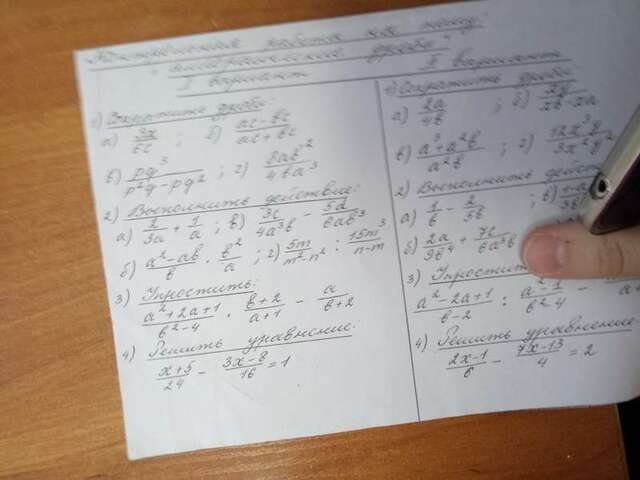 Контрольная работа на тему:
"Алгебраические дроби"
I вариант
1) Сократить дроби:
а) 3x/6c ; б) ac-bc/ac+bc
в) pq³/p²q-pq² ; г) 8ab²/46a³
2) Выполнить действие:
а) 2/3a + 1/a ; в) 3c/4a³b - 5d/6ab³
б) a²-ab/b · b²/a ; г) 5m/m²-n² : 15m³/n-m
3) Упростить:
a²+2a+1/b²-4 · b+2/a+1 - a/b+2
4) Решить уравнение:
x+5/24 - 3x-8/16 = 1
II вариант
1) Сократить дроби
а) 2a/4b ; б)
в) a³+a²b/a²b ; г) 12x³y/3x²y
2) Выполнить
а) 1/b - 2/5b ; в)
б) 2a/9b⁴ + 7c/6a³b
3) Упростить:
a²-2a+1/b-2 : a²-1/b²-4 -
4) Решить уравнение
2x-1/6 - 7x-13/4 = 2